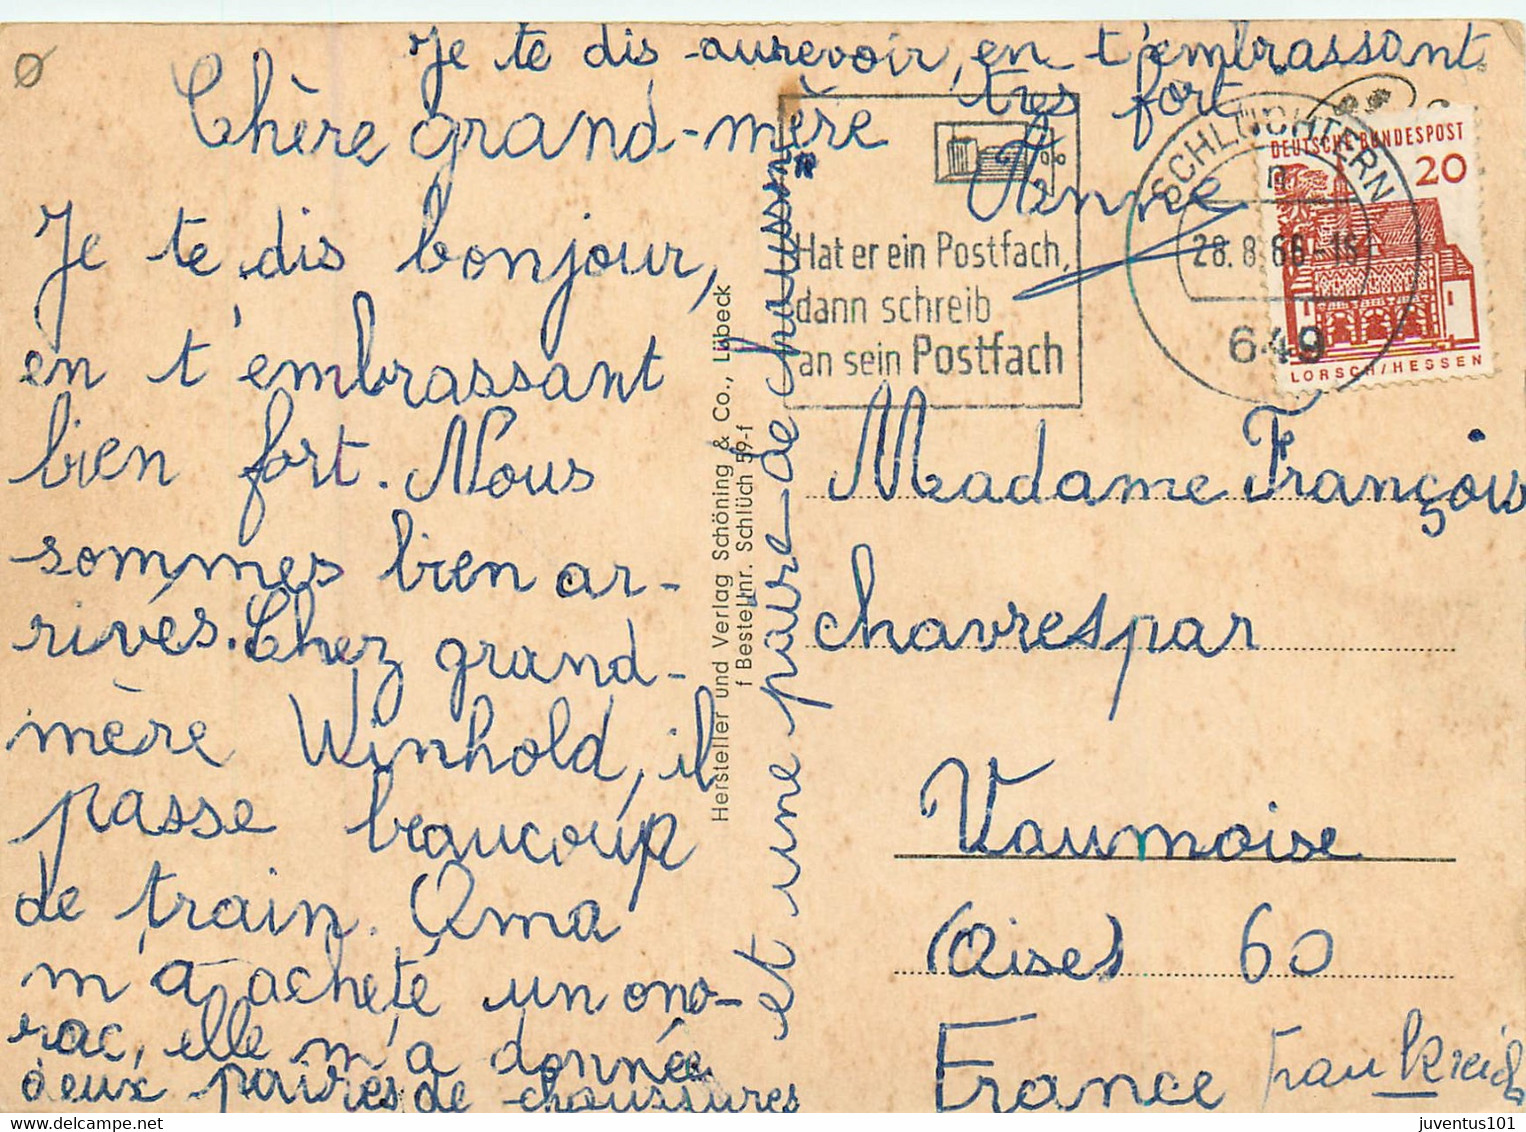 Chère grand-mère
Je te dis bonjour,
en t'embrassant
bien fort. Nous
sommes bien ar-
rivés. Chez grand-
mère Winhold, il
passe beaucoup
de train. Oma
m'a acheté un ono-
rac, elle m'a donnée
deux paires de chaussures
et une paire de chausson
Je te dis aurevoir, en t'embrassant
très fort
Anne
Hersteller und Verlag Schöning & Co., Lübeck
f Bestellnr. Schlüch 59-f
Hat er ein Postfach,
dann schreib
an sein Postfach
SCHLÜCHTERN
n
28.8.66-15
649
DEUTSCHE BUNDESPOST
20
LORSCH/HESSEN
Madame François
chavrespar
Vaumoise
(Oise) 60
France Frankreich
juventus101